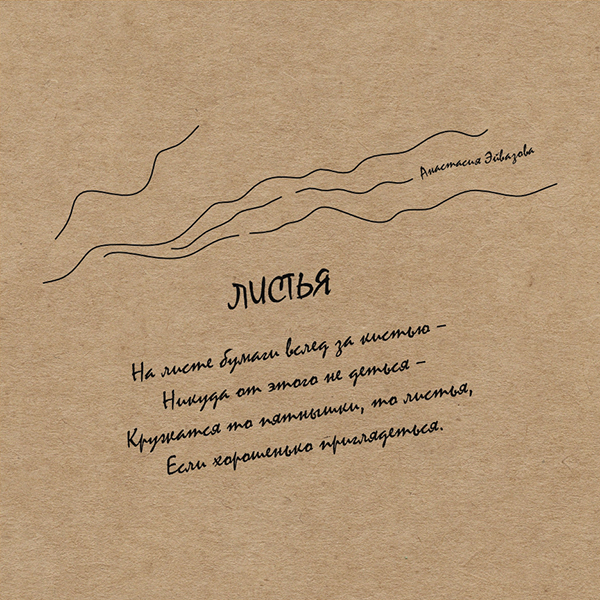 Анастасия Эйвазова
ЛИСТЬЯ
На листе бумаги вслед за кистью –
Никуда от этого не деться –
Кружатся то пятнышки, то листья,
Если хорошенько приглядеться.